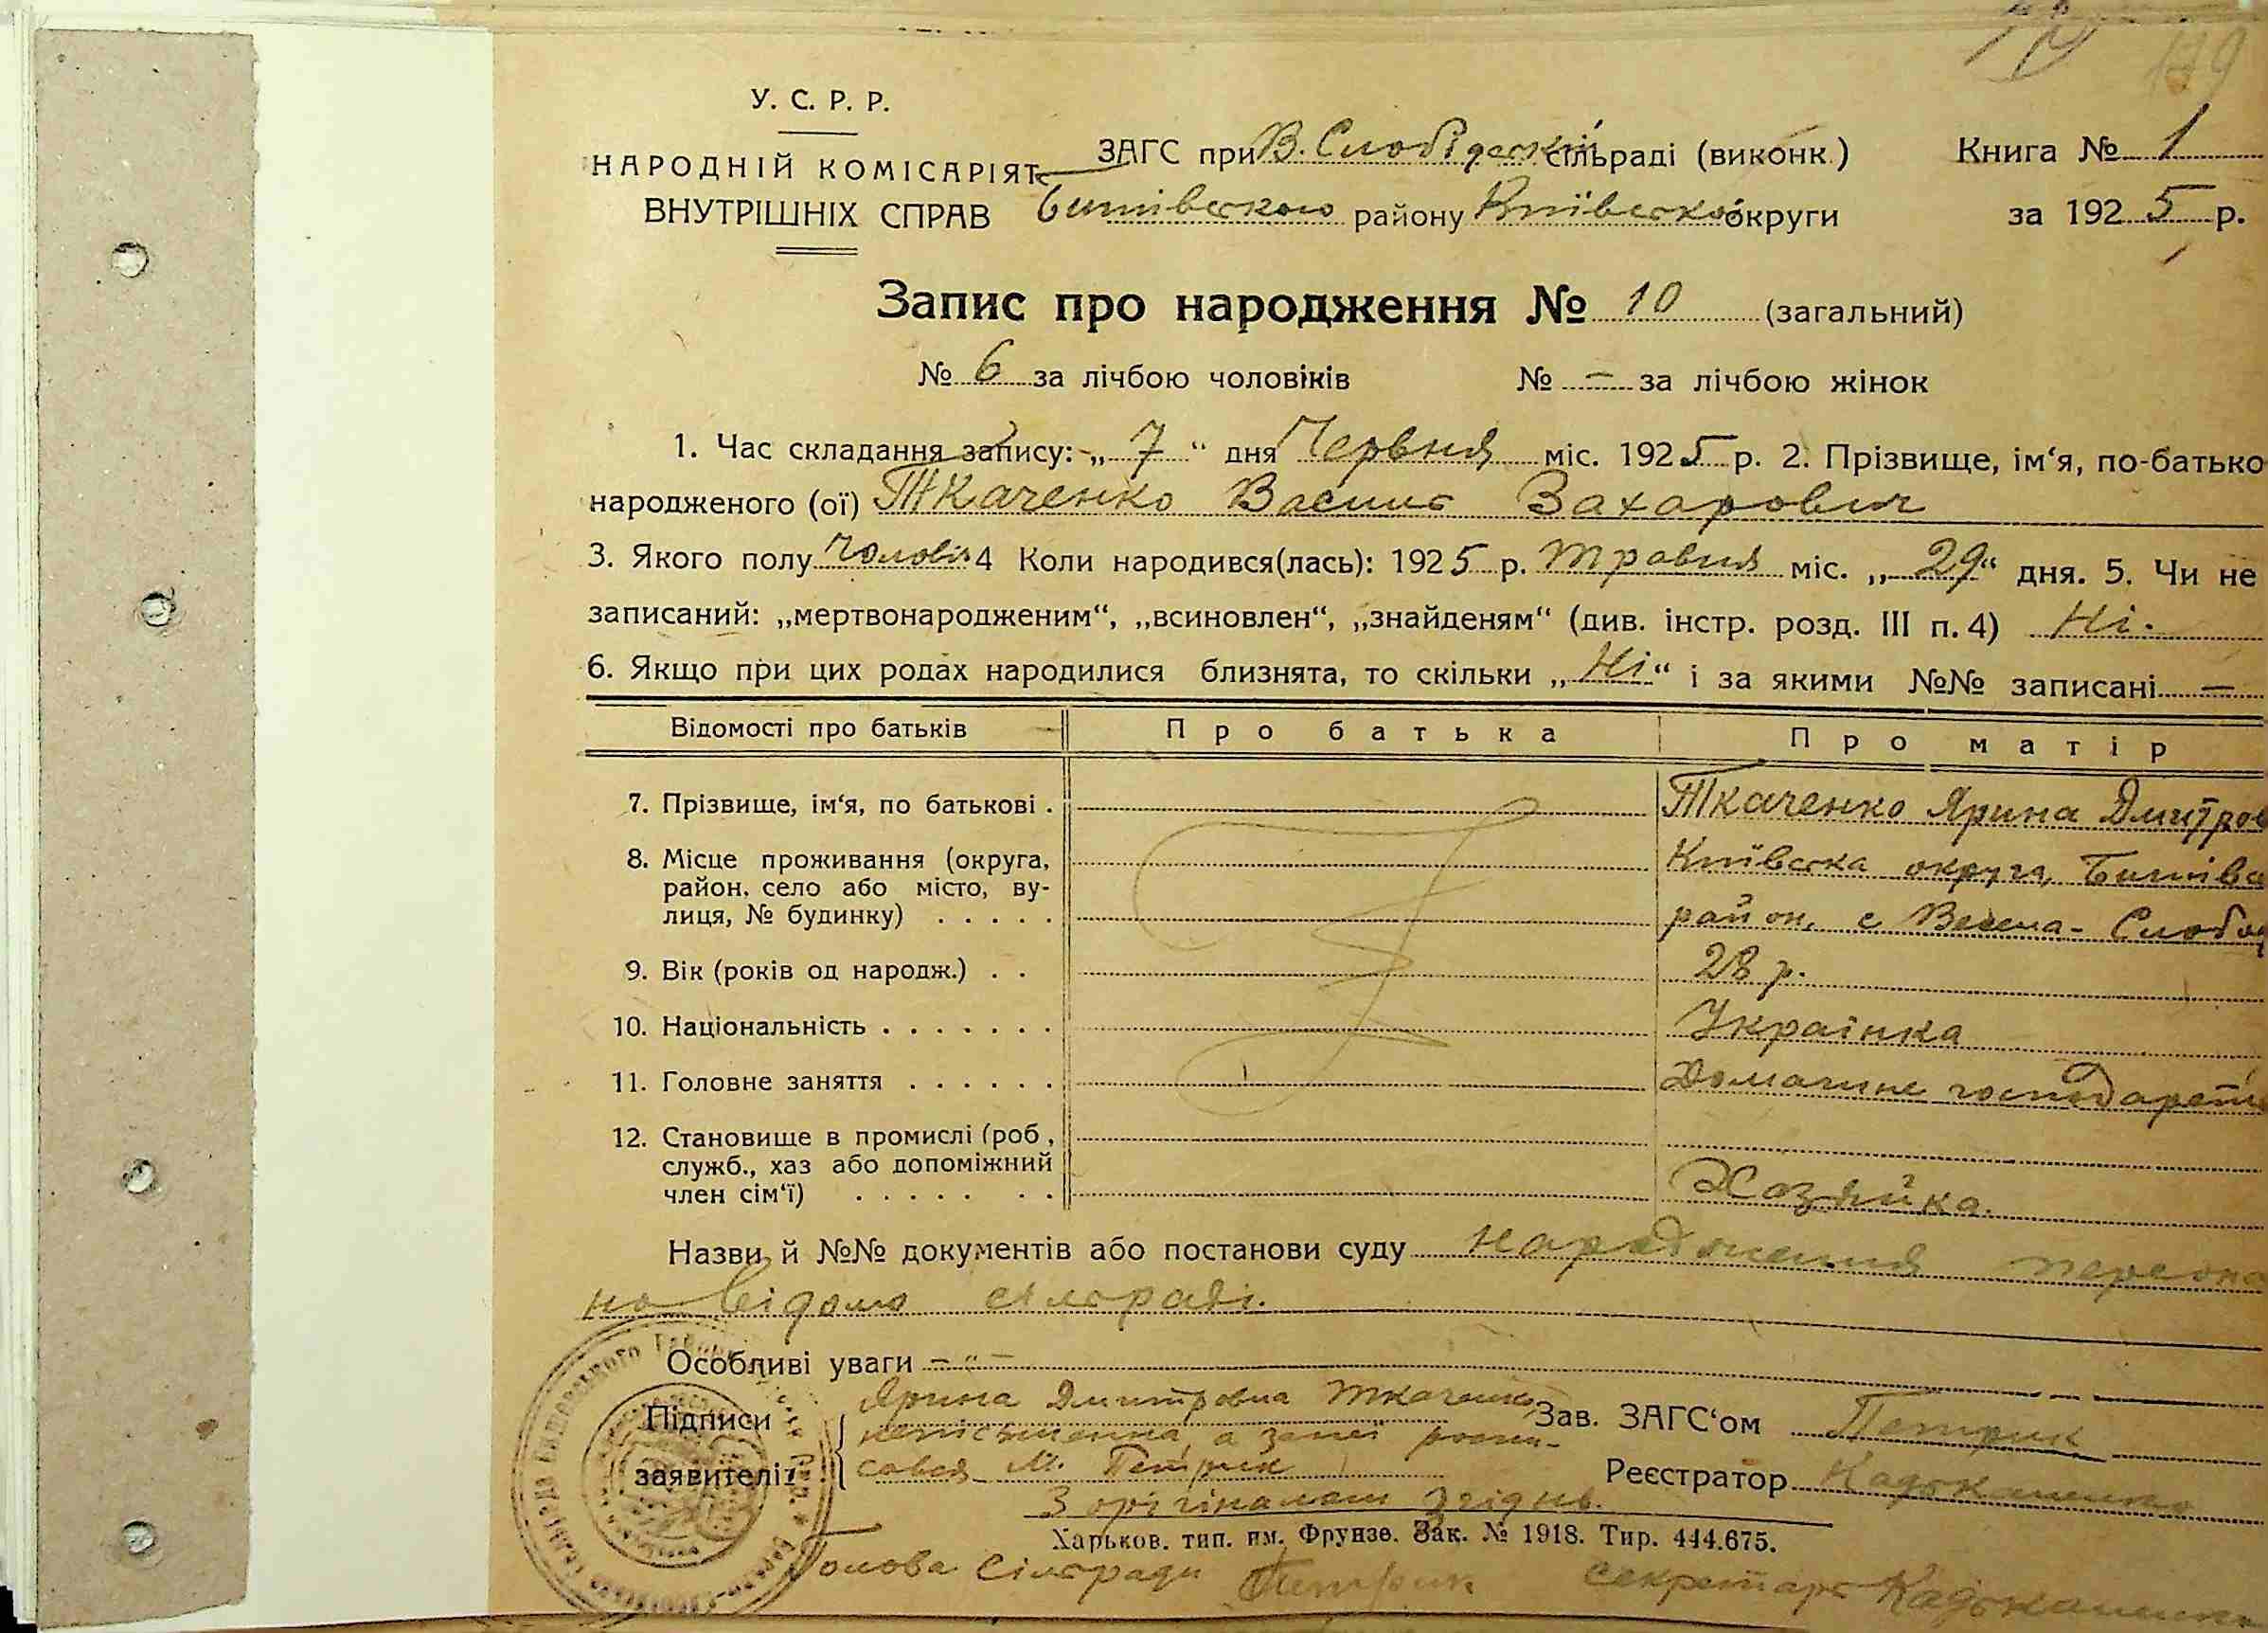 У. С. Р. Р.
НАРОДНІЙ КОМІСАРІЯТ
ВНУТРІШНІХ СПРАВ
ЗАГС при В. Слобідській сільраді (виконк.)
району Київської округи
Книга № 1
за 1925 р.
Запис про народження № 10 (загальний)
№ 6 за лічбою чоловіків № — за лічбою жінок
1. Час складання запису: „ 7 “ дня Червня міс. 1925 р. 2. Прізвище, ім‘я, по-батько
народженого (ої) Ткаченко Василь Захарович
3. Якого полу чоловіч 4 Коли народився(лась): 1925 р. травня міс. „ 29 “ дня. 5. Чи не
записаний: „мертвонародженим“, „всиновлен“, „знайденям“ (див. інстр. розд. III п. 4) Ні.
6. Якщо при цих родах народилися близнята, то скільки „ Ні “ і за якими №№ записані —
Відомості про батьків Про батька Про матір
7. Прізвище, ім‘я, по батькові . Ткаченко Ярина Дмитров
8. Місце проживання (округа, Київська округа,
район, село або місто, ву- район, с Весела - Слобод
лиця, № будинку) . . . . .
9. Вік (років од народж.) . . 28 р.
10. Національність . . . . . . . Українка
11. Головне заняття . . . . . . Домашне
12. Становище в промислі (роб ,
служб., хаз або допоміжний
член сім‘ї) . . . . . . . Хозяйка.
Назви й №№ документів або постанови суду народження
відомо сільраді.
Особливі уваги — " —
Підписи
заявителів
Ярина Дмитровна Ткаченко
неписьменна, а за неї роспи-
сався М. Петрик
Зав. ЗАГС‘ом Петрик
Реєстратор
З орігіналом згідно.
Харьков. тип. им. Фрунзе. Зак. № 1918. Тир. 444.675.
Голова Сільради Петрик Секретарь